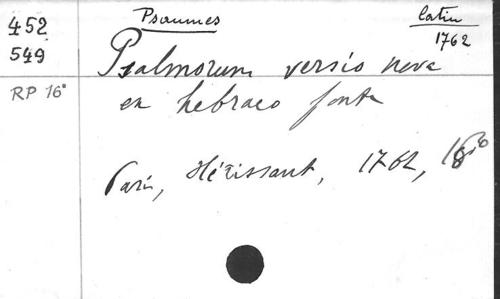 452
549
RP 16°
Psaumes
latin
1762
Psalmorum versio nova
ex hebraeo fonte
Paris, Hérissant, 1762, 18°